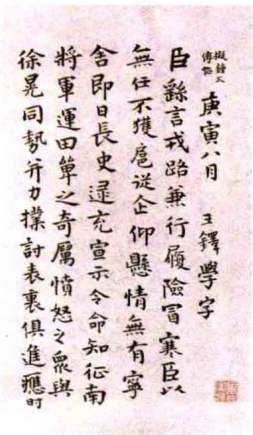 擬鍾太
傅帖
庚寅八月 王鐸學字
臣繇言戎路兼行履險冒寒臣以
無任不獲扈從企仰懸情無有寧
舍即日長史逯充宣示令命知征南
將軍運田單之奇厲憤怒之衆與
徐晃同勢并力撲討表裏俱進應時